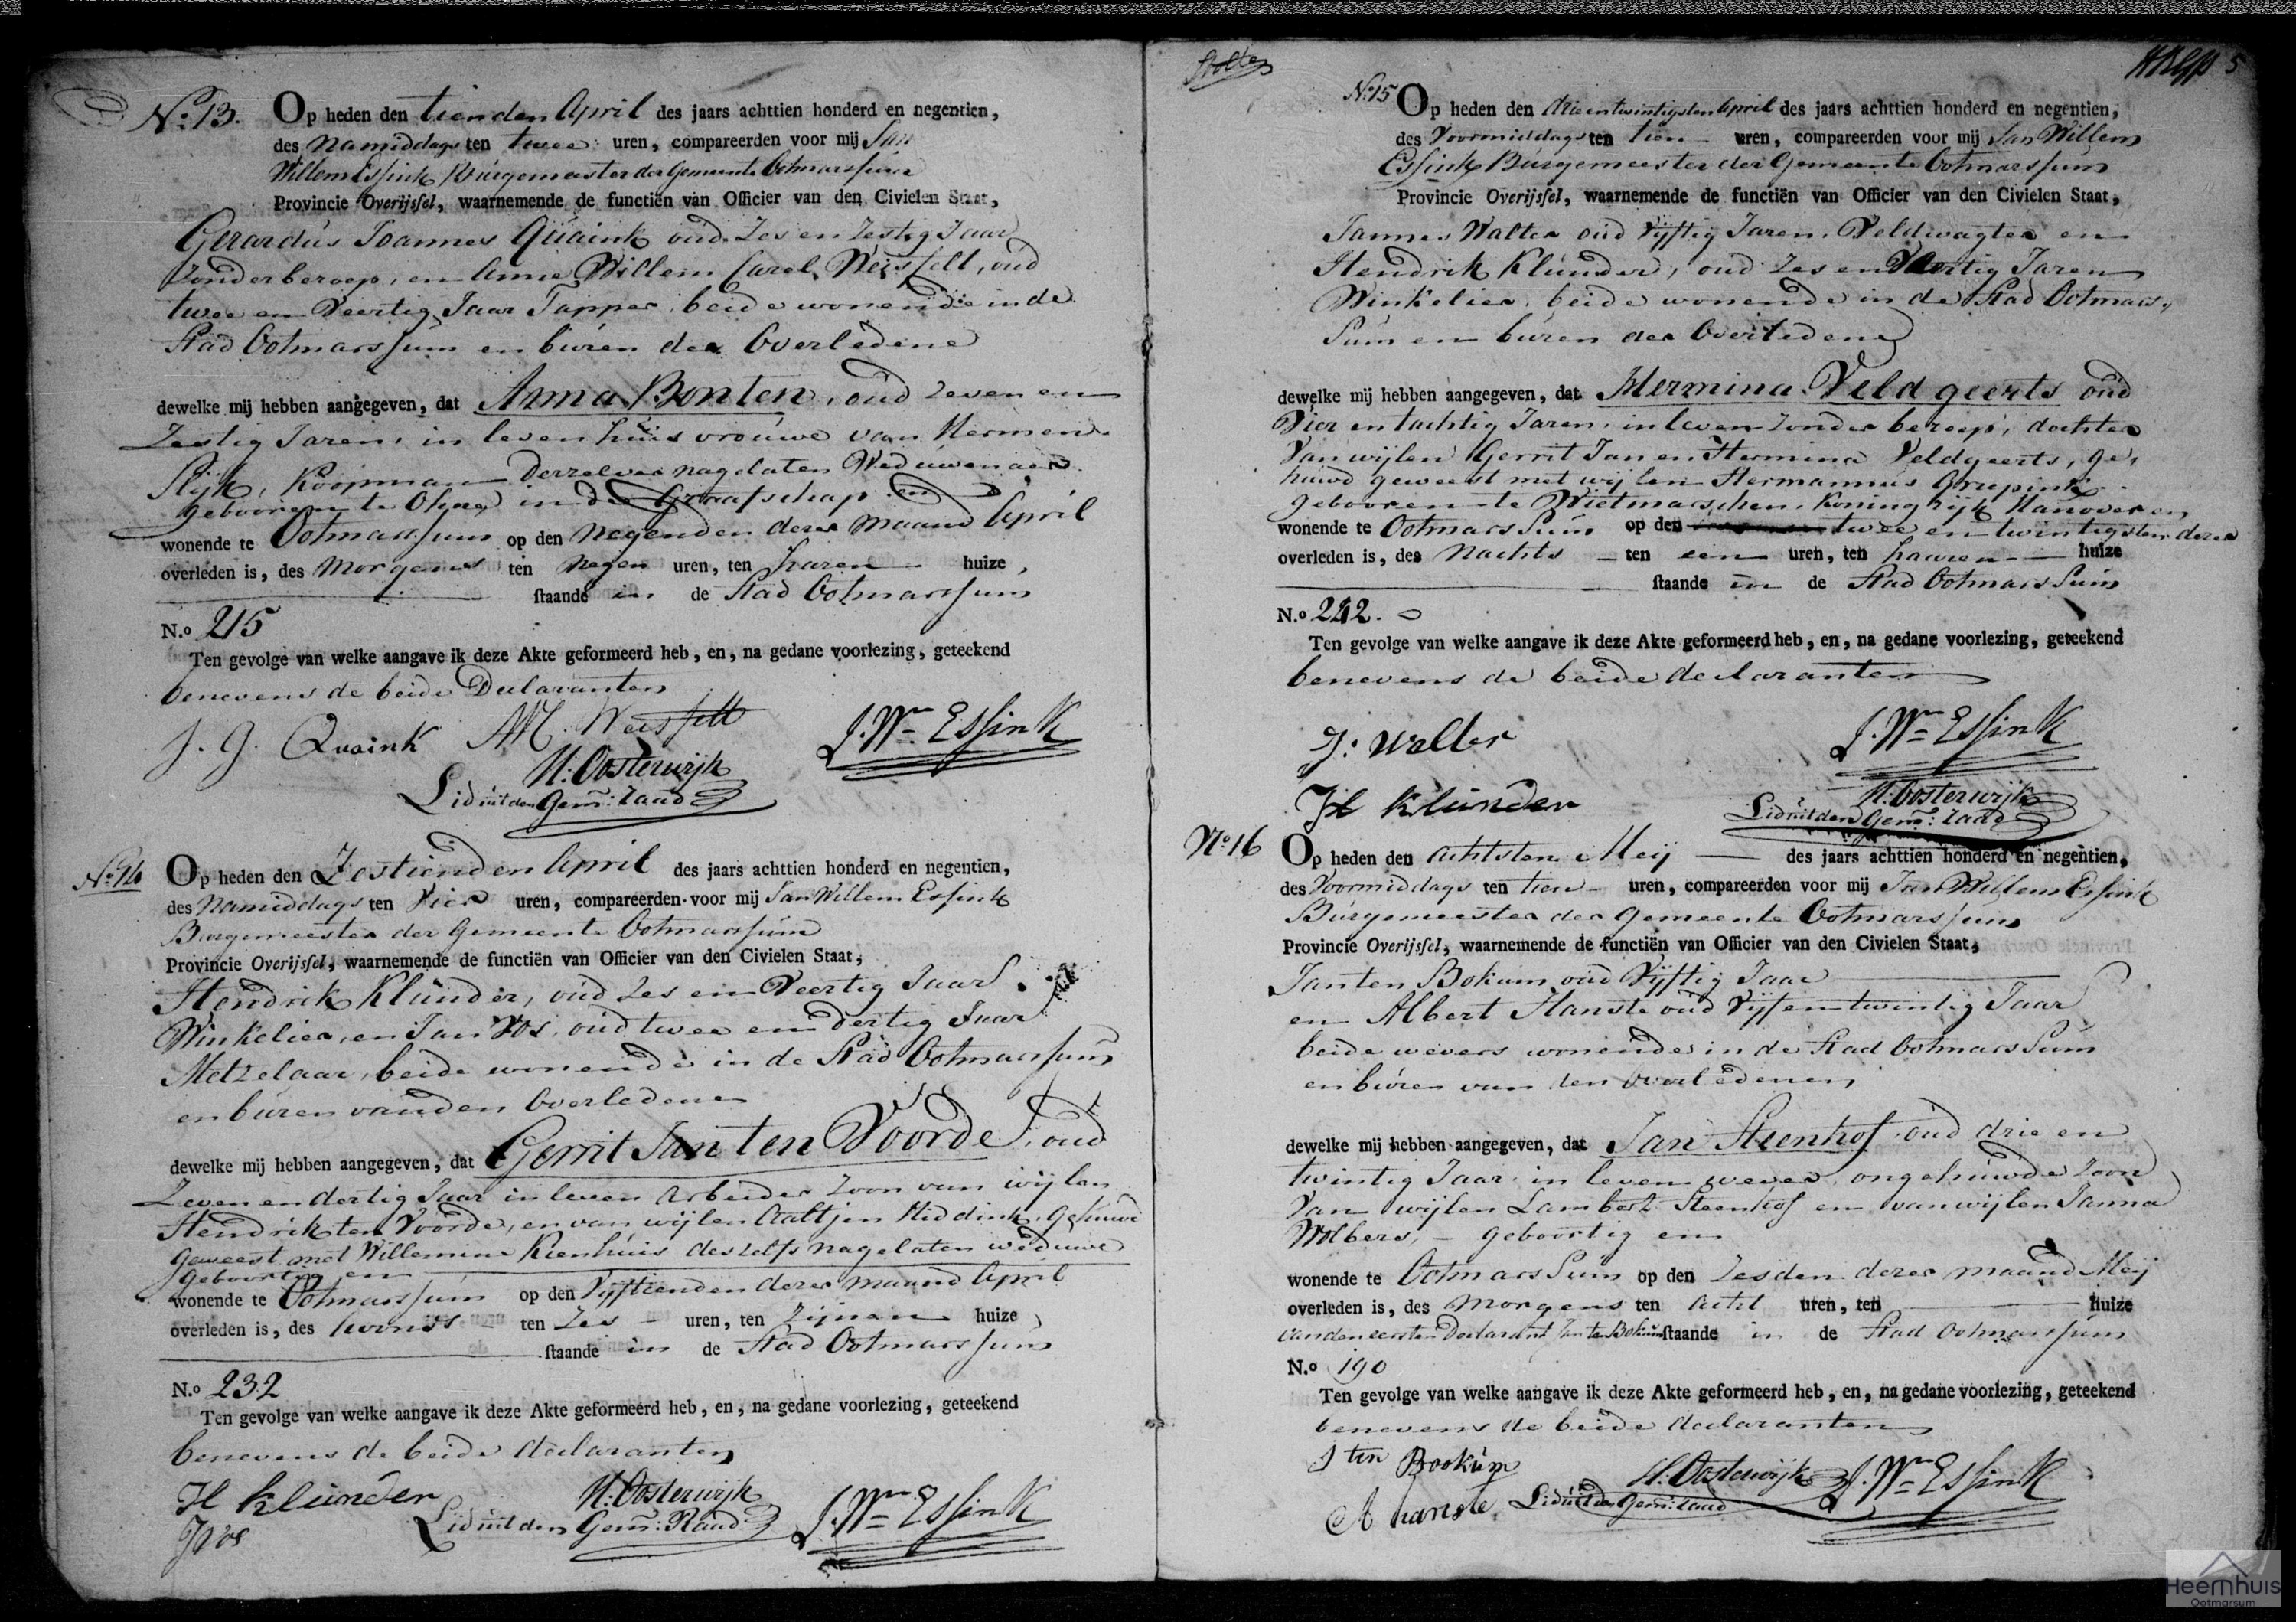 No. 13. Op heden den tienden April des jaars achttien honderd en negentien,
des namiddags ten twee uren, compareerden voor mij Jan
Willem Essink Burgemeester der Gemeente Ootmarssum
Provincie Overijssel, waarnemende de functiën van Officier van den Civielen Staat,
Gerardus Joannes Quaink oud Zes en Zestig Jaar
Zonder beroep, en Willem Carel Weisfelt, oud
twee en Veertig Jaar Tapper, beide wonende in de
Stad Ootmarssum en buren der Overledene
dewelke mij hebben aangegeven, dat Anna Bonten, oud Zeven en
Zestig Jaren, in leven huisvrouwe van Hermen
Slijk, Koopman derzelver nagelaten Weduwenaer
gebooren te Ohne in de Graafschap en
wonende te Ootmarssum op den negenden dezer maand April
overleden is, des morgens ten negen uren, ten haren huize,
staande in de Stad Ootmarssum
N.o 215
Ten gevolge van welke aangave ik deze Akte geformeerd heb, en, na gedane voorlezing, geteekend
benevens de beide Declaranten
J. G. Quaink Weisfelt J. Wm Essink
H: Oosterwijk
Lid uit den Gem: raad
No. 14 Op heden den Zestienden April des jaars achttien honderd en negentien,
des Namiddags ten Vier uren, compareerden voor mij Jan Willem Essink
Burgemeester der Gemeente Ootmarssum
Provincie Overijssel, waarnemende de functiën van Officier van den Civielen Staat,
Hendrik Klunder, oud Zes en Veertig Jaar
Winkelier, en Jan Vos, oud twee en dertig Jaar
Metzelaar, beide wonende in de Stad Ootmarssum
en buren van den Overledene
dewelke mij hebben aangegeven, dat Gerrit Jan ten Voorde, oud
Zeven en dertig Jaar in leven Arbeider Zoon van wijlen
Hendrik ten Voorde, en van wijlen Aaltjen Hiddink, gehuwd
geweest met Willemina Kienhuis deszelfs nagelaten weduwe
geboortig en
wonende te Ootmarssum op den Vijftienden dezer maand April
overleden is, des avonds ten Zes uren, ten Zijnen huize,
staande in de Stad Ootmarssum
N.o 232
Ten gevolge van welke aangave ik deze Akte geformeerd heb, en, na gedane voorlezing, geteekend
benevens de beide declaranten
H Klunder H: Oosterwijk
J vos Lid uit den Gem: Raad J. Wm Essink
5
No. 15 Op heden den drieentwintigsten April des jaars achttien honderd en negentien,
des Voormiddags ten tien uren, compareerden voor mij Jan Willem
Essink Burgemeester der Gemeente Ootmarssum
Provincie Overijssel, waarnemende de functiën van Officier van den Civielen Staat,
Jannes Walter oud Vijftig Jaren, Veldwagter en
Hendrik Klunder, oud Zes en Veertig Jaren
Winkelier, beide wonende in de Stad Ootmars
sum en buren der Overledene
dewelke mij hebben aangegeven, dat Hermina Veldgeerts oud
Vier en tachtig Jaren, in leven Zonder beroep, dochter
Van wijlen Gerrit Jan en Hermina Veldgeerts, ge
huwd geweest met wijlen Hermannus Groepink
gebooren te Wietmarschen, Koningrijk Hanover en
wonende te Ootmarssum op den twee en twintigsten dezer
overleden is, des Nachts ten een uren, ten haaren huize
staande in de Stad Ootmarssum
N.o 242.
Ten gevolge van welke aangave ik deze Akte geformeerd heb, en, na gedane voorlezing, geteekend
benevens de beide declaranten
J: Walter J. Wm Essink
H Klunder H: Oosterwijk
Lid uit den Gem: raad
No. 16 Op heden den Achtsten Meij des jaars achttien honderd en negentien,
des Voormiddags ten tien uren, compareerden voor mij Jan Willem Essink
Burgemeester der Gemeente Ootmarssum
Provincie Overijssel, waarnemende de functiën van Officier van den Civielen Staat,
Jan ten Bokum oud Vijftig Jaar
en Albert Hanste oud Vijf en twintig Jaar
beide wevers wonende in de Stad Ootmarssum
en buren van den overledenen
dewelke mij hebben aangegeven, dat Jan Steenhof oud drie en
twintig Jaar, in leven wever, ongehuwde Zoon
Van wijlen Lambert Steenhof en van wijlen Janna
Wolbers, geboortig en
wonende te Ootmarssum op den Zesden dezer maand Meij
overleden is, des morgens ten acht uren, ten huize
van den eersten Declarant Jan ten Bokum staande in de Stad Ootmarssum
N.o 190
Ten gevolge van welke aangave ik deze Akte geformeerd heb, en, na gedane voorlezing, geteekend
benevens de beide declaranten
J ten Bookum H. Oosterwijk J. Wm Essink
A hanste Lid uit den Gem: raad
Heemhuis
Ootmarsum